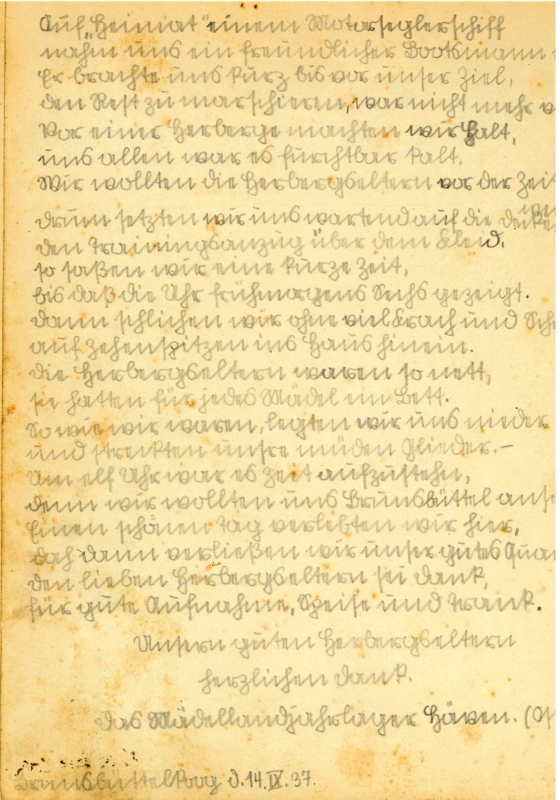 Auf „Heimat“ einem Motorseglerschiff
nahm uns ein freundlicher Bootsmann
Er brachte uns kurz bis vor unser Ziel,
den Rest zu marschieren, war nicht mehr
Vor einer Herberge machten wir Halt,
uns allen war es furchtbar kalt.
Wir wollten die Herbergseltern vor der Zeit
drum setzten wir uns wartend auf die
den Trainingsanzug über dem Kleid.
so saßen wir eine kurze Zeit,
bis daß die Uhr frühmorgens Sechs gezeigt.
dann schlichen wir ohne viel Krach und
auf Zehenspitzen ins Haus hinein.
die Herbergseltern waren so nett,
sie hatten für jedes Mädel ein Bett.
So wie wir waren, legten wir uns nieder
und streckten unsre müden Glieder.–
Um elf Uhr war es Zeit aufzustehn,
denn wir wollten uns Brunsbüttel
Einen schönen Tag verlebten wir hier,
doch dann verließen wir unser gutes
den lieben Herbergseltern sei Dank,
für gute Aufnahme, Speise und Trank.
Unsern guten Herbergseltern
herzlichen Dank.
das Mädellandjahrlager Häven.
Brunsbüttelkoog d. 14. IX. 37.